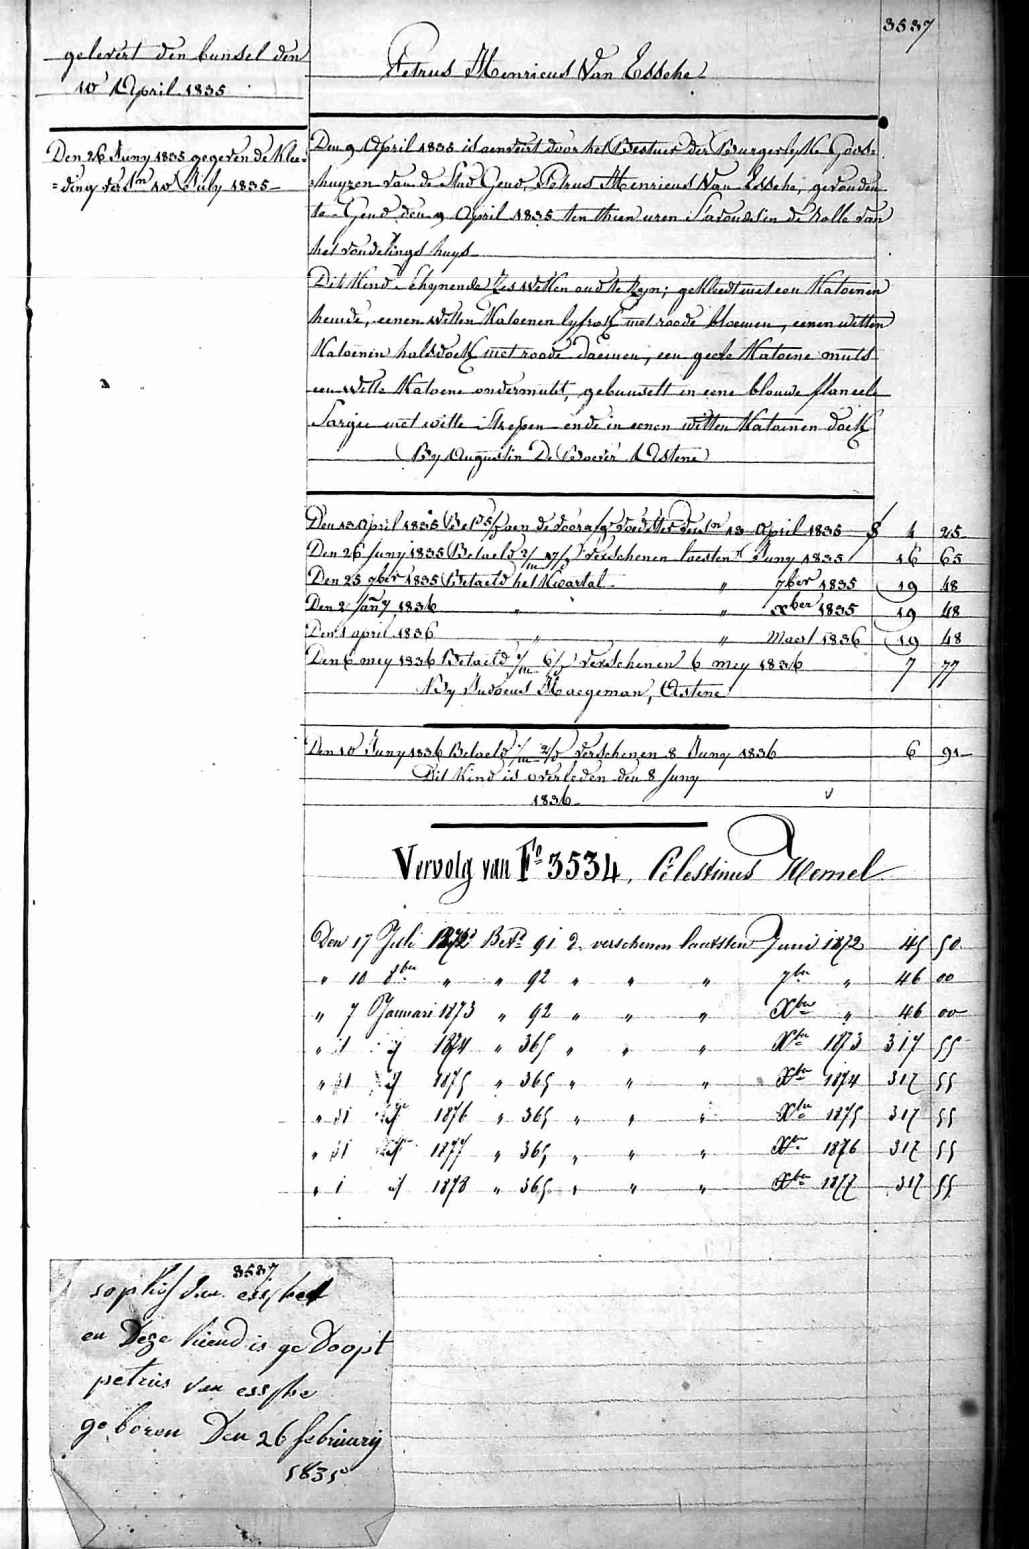 3537
gelevert den bunsel den
10 April 1835
Petrus Henricus Van Essche
Den 26 Juny 1835 gegeven de Klee-
=ding versn 10 July 1835
Den 9 April 1835 is aenveert door het Bestuer der Burgerlyke Gods-
huyzen van de Stad Gend, Petrus Henricus Van Essche, gevonden
te Gend den 9 April 1835 ten thien uren s'avonds in de rolle van
het vondelings huys
Dit Kind schynende Zes weken oud te Zyn; gekleed met een Katoenen
hemde, eenen witten Katoenen lyfrok met roode bloemen, eenen witten
Katoenen halsdoek met roode , een geele Katoene muts
een witte Katoene ondermuts, gebunselt in eene blouwe flaneele
Sargie met witte strepen ende in eenen witten Katoenen doek
By Augustin De Astene
Den 13 April 1835 1835 1 25
Den 26 Juny 1835 Betaeld 2/m 17/d verschenen laesten Juny 1835 16 65
Den 25 7ber 1835 Betaeld het Kwartal " 7ber 1835 19 48
Den 2 Jany 1836 " " xber 1835 19 48
Den 1 april 1836 " " Maert 1836 19 48
Den 6 mey 1836 Betaeld 1/m 6/d verschenen 6 mey 1836 7 77
By Judocus Haegeman, Astene
Den 10 Juny 1836 Betaeld 1/m 2/d verschenen 8 Juny 1836 6 91
Dit Kind is overleden den 8 Juny
1836
Vervolg van Fo 3534, Celestinus Hemel
Den 17 Juli 1872 Betd 91 d. verschenen laatsten Juni 1872 45 50
" 10 8ber " " 92 " " " 7ber " 46 00
" 7 Januari 1873 " 92 " " " Xber " 46 00
" 1 1874 " 365 " " " Xber 1873 317 55
" 31 1875 " 365 " " " Xber 1874 317 55
" 31 1876 " 365 " " " Xber 1875 317 55
" 31 1877 " 365 " " " Xber 1876 317 55
" 1 1878 " 365 " " " Xber 1877 317 55
3537
van essche
en Deze kiend is ge Doopt
petrus van essche
geboren Den 26 februarij
1835